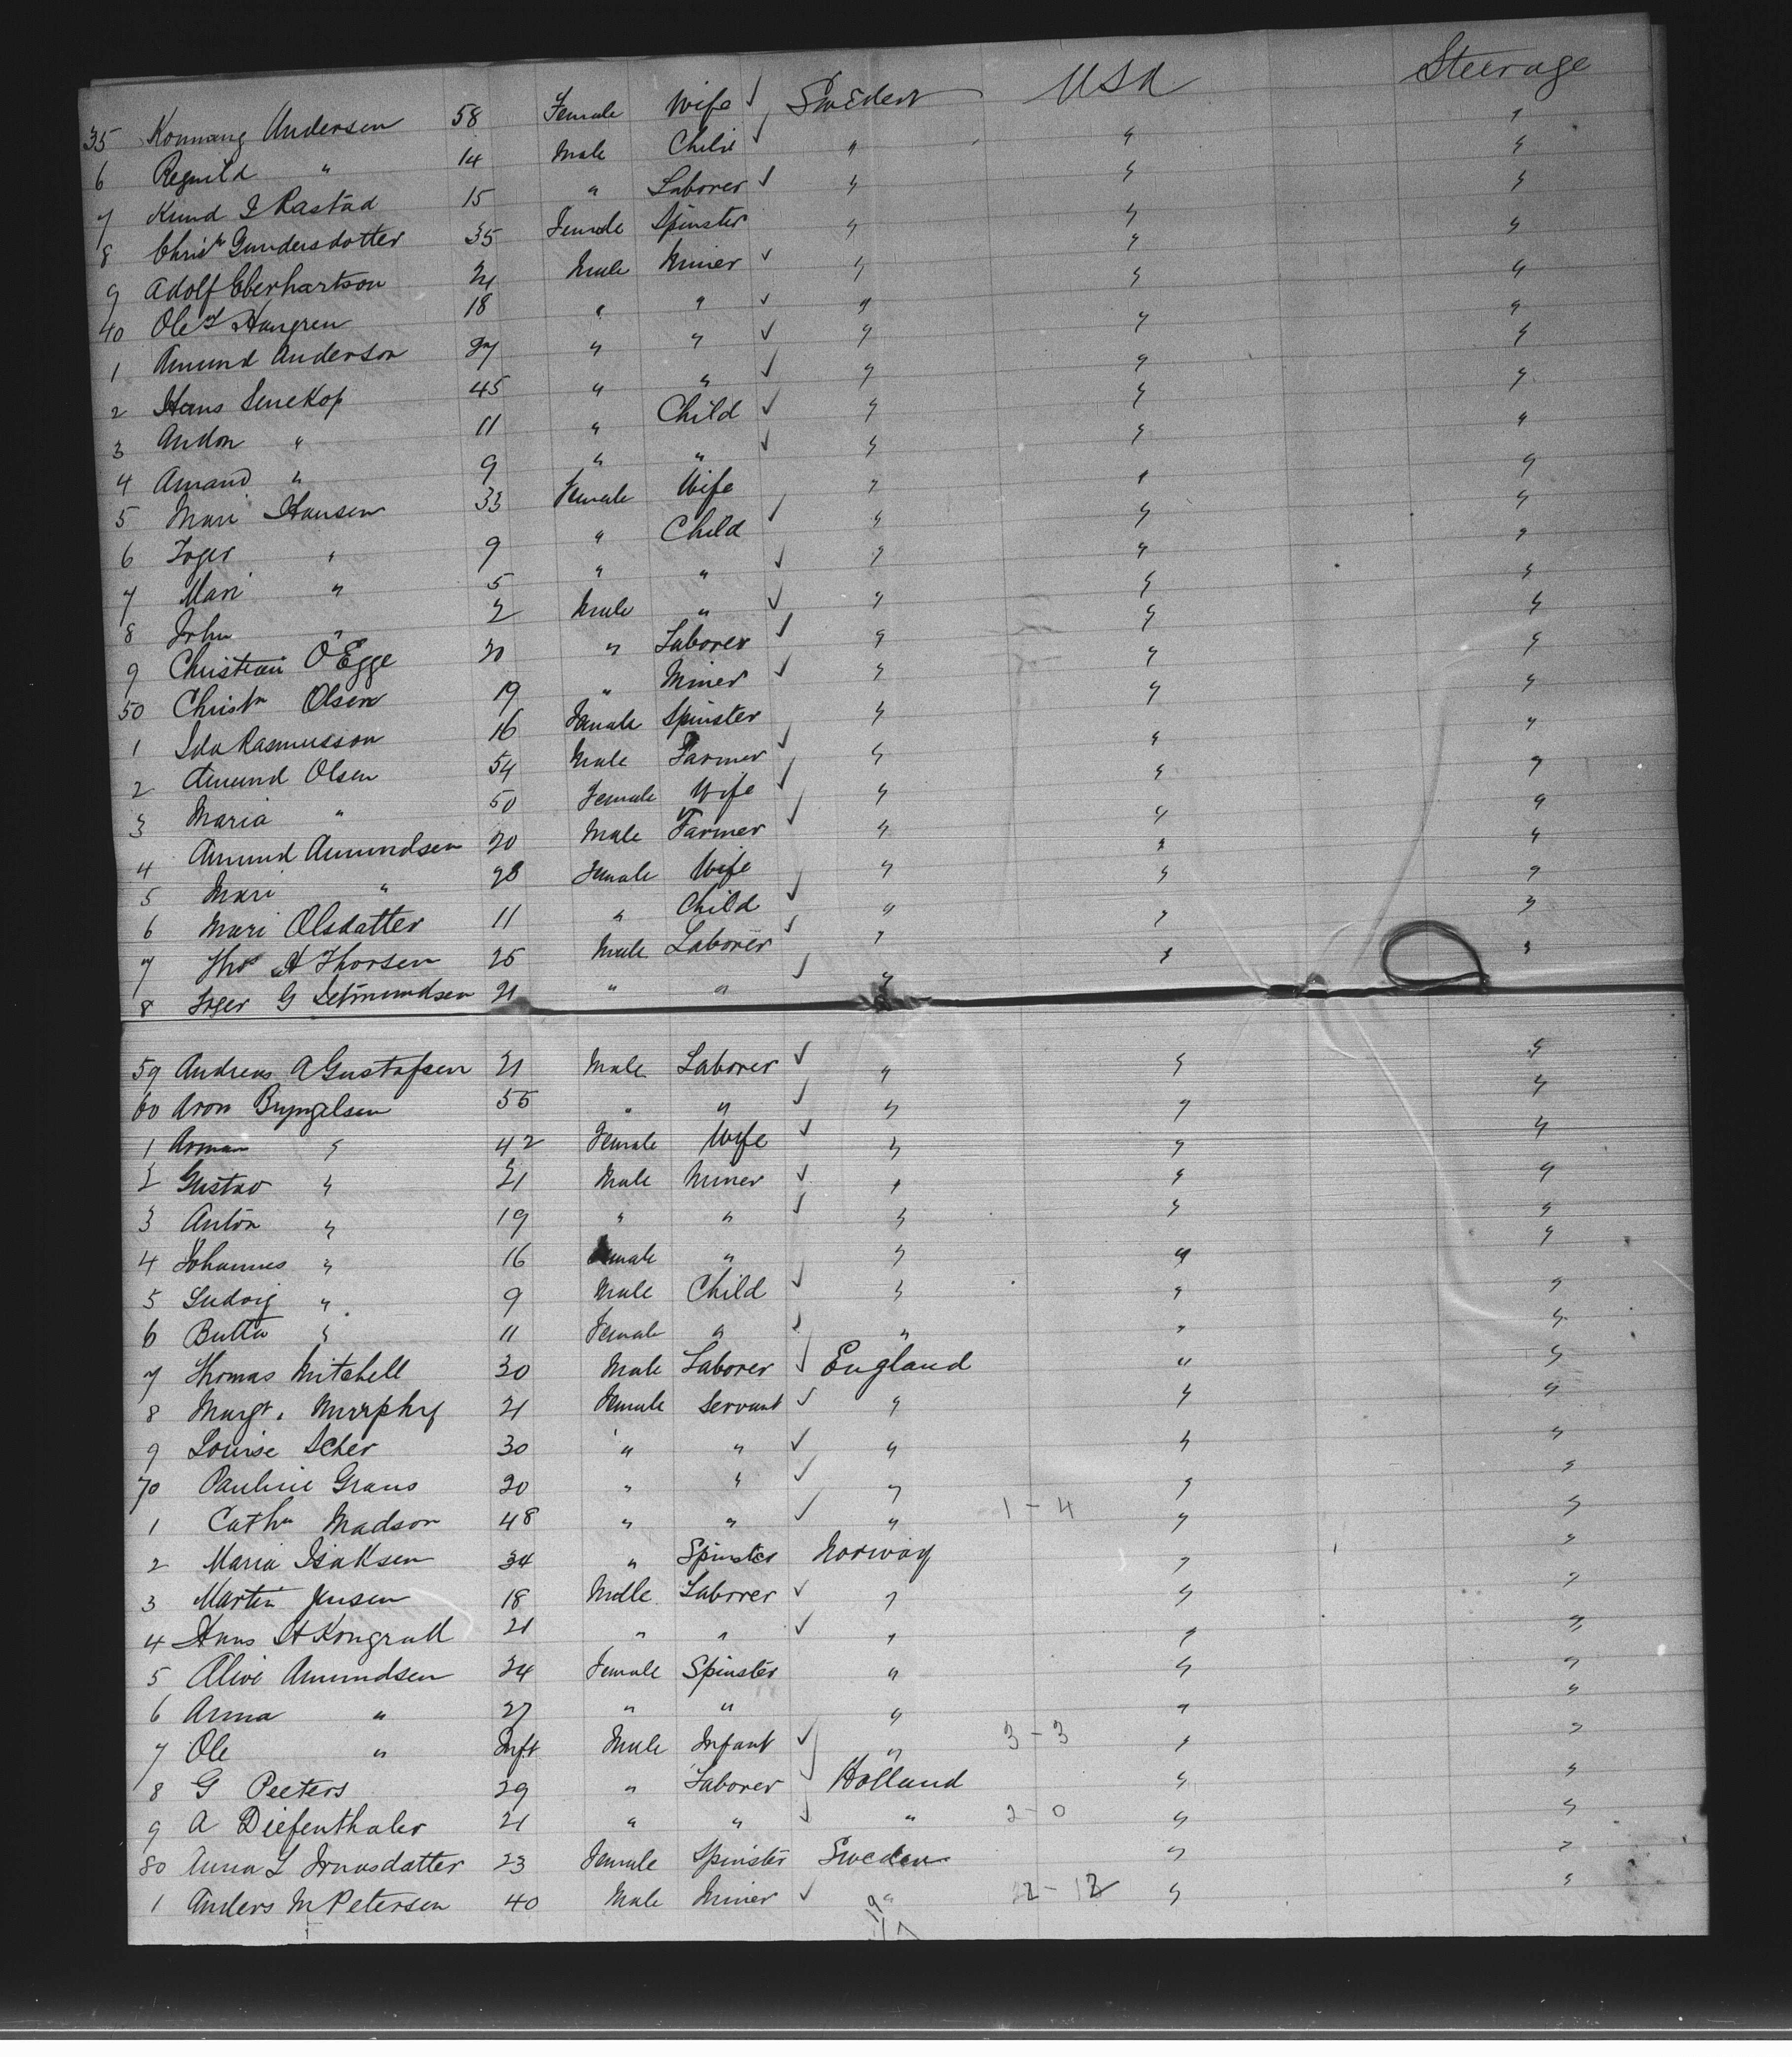 35 Konnang Andersen 58 Female Wife ✓ Sweden USA Steerage
6 Regnild " 14 Male Child ✓ " " "
7 Knud I Rastad 15 " Laborer ✓ " " "
8 Christn Gundersdotter 35 Female Spinster " " "
9 Adolf Eberhartson 21 Male Miner ✓ " " "
40 Ole Haugren 18 " " ✓ " " "
1 Amund Anderson 27 " " ✓ " " "
2 Hans Senekop 45 " " ✓ " " "
3 Andon " 11 " Child ✓ " " "
4 Amand " 9 " " ✓ " " "
5 Mari Hansen 33 Female Wife " " "
6 Inger " 9 " Child ✓ " " "
7 Mari " 5 " " ✓ " " "
8 John " 2 Male " ✓ " " "
9 Christian O Egge 20 " Laborer ✓ " " "
50 Christn Olsen 19 " Miner ✓ " " "
1 Ida Rasmusson 16 Female Spinster " " "
2 Amund Olsen 54 Male Farmer ✓ " " "
3 Maria " 50 Female Wife ✓ " " "
4 Amund Amundsen 20 Male Farmer ✓ " " "
5 Mari " 28 Female Wife " " "
6 Mari Olsdatter 11 " Child ✓ " " "
7 Thos A Thorsen 25 Male Laborer ✓ " " "
8 Inger G 21 " " ✓ "
59 Andreas A Gustafsen 21 Male Laborer ✓ " " "
60 Aron Bryngelsen 55 " " ✓ " " "
1 " 42 Female Wife ✓ " " "
2 Gustav " 21 Male Miner ✓ " " "
3 Anton " 19 " " ✓ " " "
4 Johannes " 16 Female " " " "
5 Ludvig " 9 Male Child ✓ " " "
6 Butta " 11 Female " ✓ " " "
7 Thomas Mitchell 30 Male Laborer ✓ England " "
8 Margt. Murrphy 21 Female Servant ✓ " " "
9 Louise Scher 30 " " ✓ " " "
70 Pauline Graus 20 " " ✓ " " "
1 Cathn Madson 48 " " ✓ " 1 - 4 " "
2 Maria Isaksen 34 " Spinster Norway " "
3 Martin Jensen 18 Male Laborer ✓ " " "
4 Hans H Kongrall 21 " " ✓ " " "
5 Alive Amundsen 24 Female Spinster " " "
6 Anna " 27 " " " " "
7 Ole " Inft Male Infant ✓ " 3 - 3 " "
8 G Peeters 29 " Laborer ✓ Holland " "
9 A Diefenthaler 21 " " ✓ " 2 - 0 " "
80 Anna L 23 Female Spinster Sweden " "
1 Anders M Petersen 40 Male Miner ✓ " 12 - 12 " "